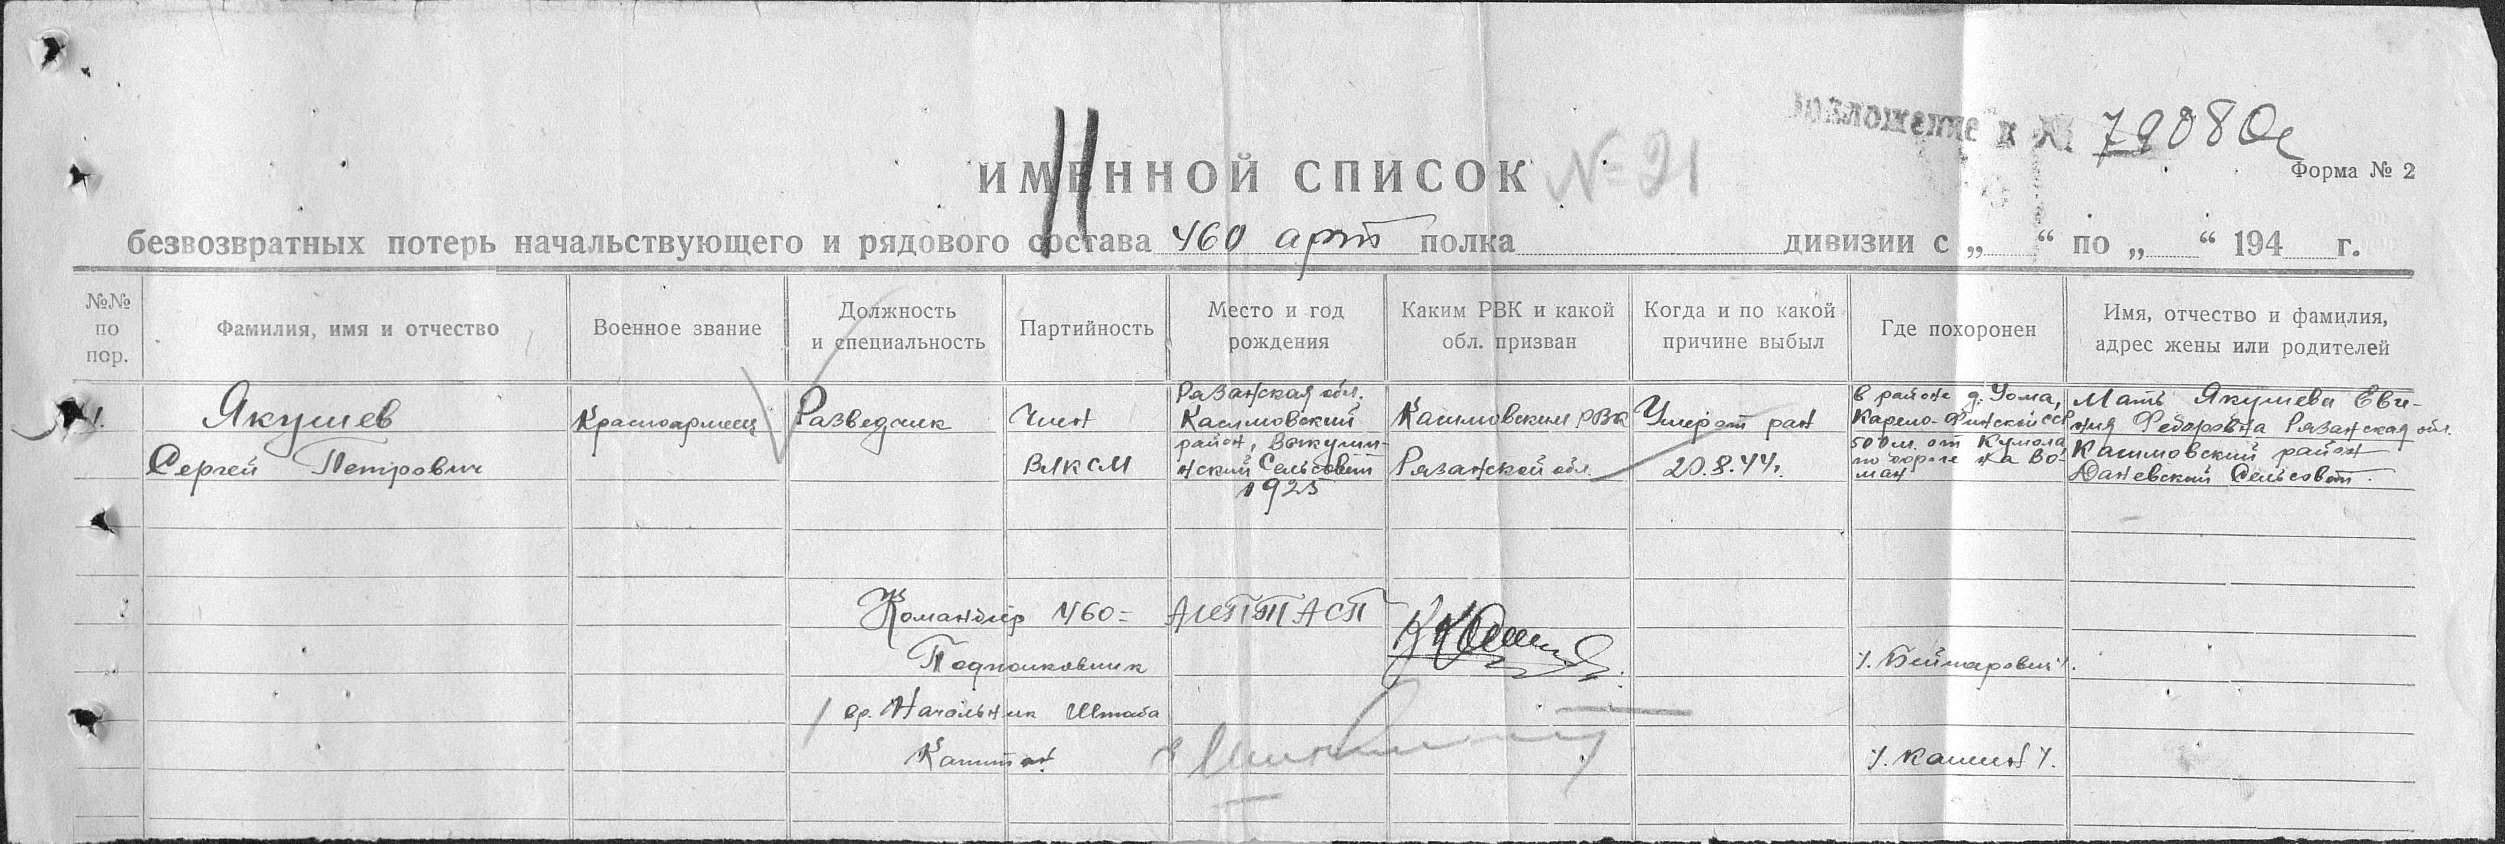 приложение к № 79080с
Форма № 2
ИМЕННОЙ СПИСОК № 21
безвозвратных потерь начальствующего и рядового состава 460 арт полка дивизии с „ “ по „ “ 194 г.
№№ по пор.
Фамилия, имя и отчество
Военное звание
Должность и специальность
Партийность
Место и год рождения
Каким РВК и какой обл. призван
Когда и по какой причине выбыл
Где похоронен
Имя, отчество и фамилия, адрес жены или родителей
1.
Якушев
Сергей Петрович
Красноармеец
Разведчик
Член
ВЛКСМ
Рязанская обл.
Касимовский
район,
нский Сельсовет
1925
Касимовским РВК
Рязанской обл.
Умер от ран
20.8.44.
в районе д. Уома,
Карело-Финской ССР
500 м. от Кумола
по дороге на Во-
ман
Мать Якушева Евге-
ния Федоровна Рязанская обл.
Касимовский район
Даневский Сельсовет.
Командир 460=
Подполковник
/. Беймарович /.
вр. Начальник Штаба
Капитан
/. Кашин /.